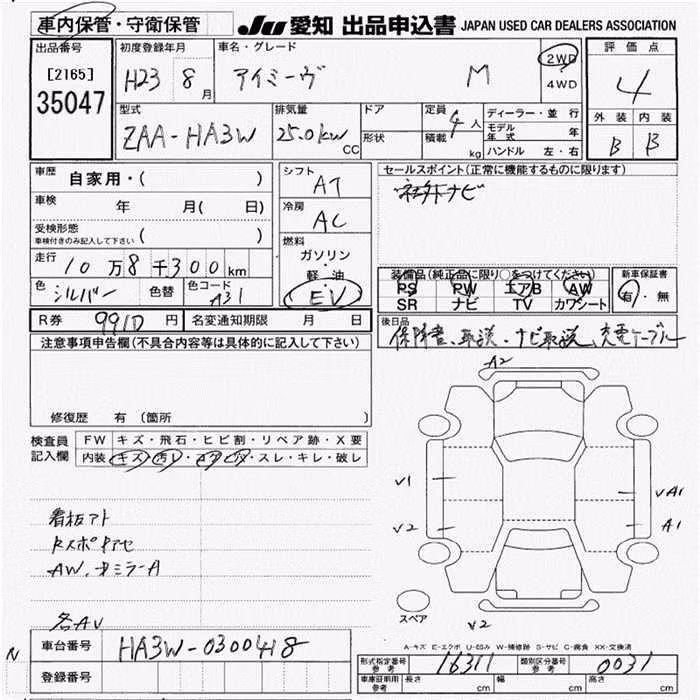 車内保管・守衛保管
JU 愛知 出品申込書 JAPAN USED CAR DEALERS ASSOCIATION
出品番号
[2165]
35047
初度登録年月
H23 8月
車名・グレード
アイミーヴ M
2WD
4WD
評価点
4
外装 内装
B B
型式
ZAA-HA3W
排気量
25.0kw CC
ドア
形状
定員 4人
積載 kg
ディーラー・並行
モデル年式 年
ハンドル 左・右
車歴 自家用・( )
車検 年 月( 日)
受検形態
車検付きのみ記入して下さい ( )
走行 10万8千300km
色 シルバー 色替 色コード A31
シフト AT
冷房 AC
燃料
ガソリン
軽・油
EV
セールスポイント(正常に機能するものに限ります)
装備品(純正品に限り○をつけてください)
PS PW エアB AW
SR ナビ TV カワシート
新車保証書
有・無
R券 9910円 名変通知期限 月 日
後日品
保障書、取説・ナビ取説、充電ケーブル
注意事項申告欄(不具合内容等は具体的に記入して下さい)
修復歴 有(箇所
検査員
記入欄
FW キズ・飛石・ヒビ割・リペア跡・X要
内装 キズ・汚レ・コゲ・ビス・スレ・キレ・破レ
看板アト
AW、
各AV
A2
V1
V2
VA1
A1
スペア
V2
A-キズ E-エクボ U-凹み W-補修跡 S-サビ C-腐食 XX-交換済
N
車台番号 HA3W-0300418
登録番号
形式指定番号 参考 16311
類別区分番号 参考 0031
車庫証明用 参考 長さ cm 幅 cm 高さ cm